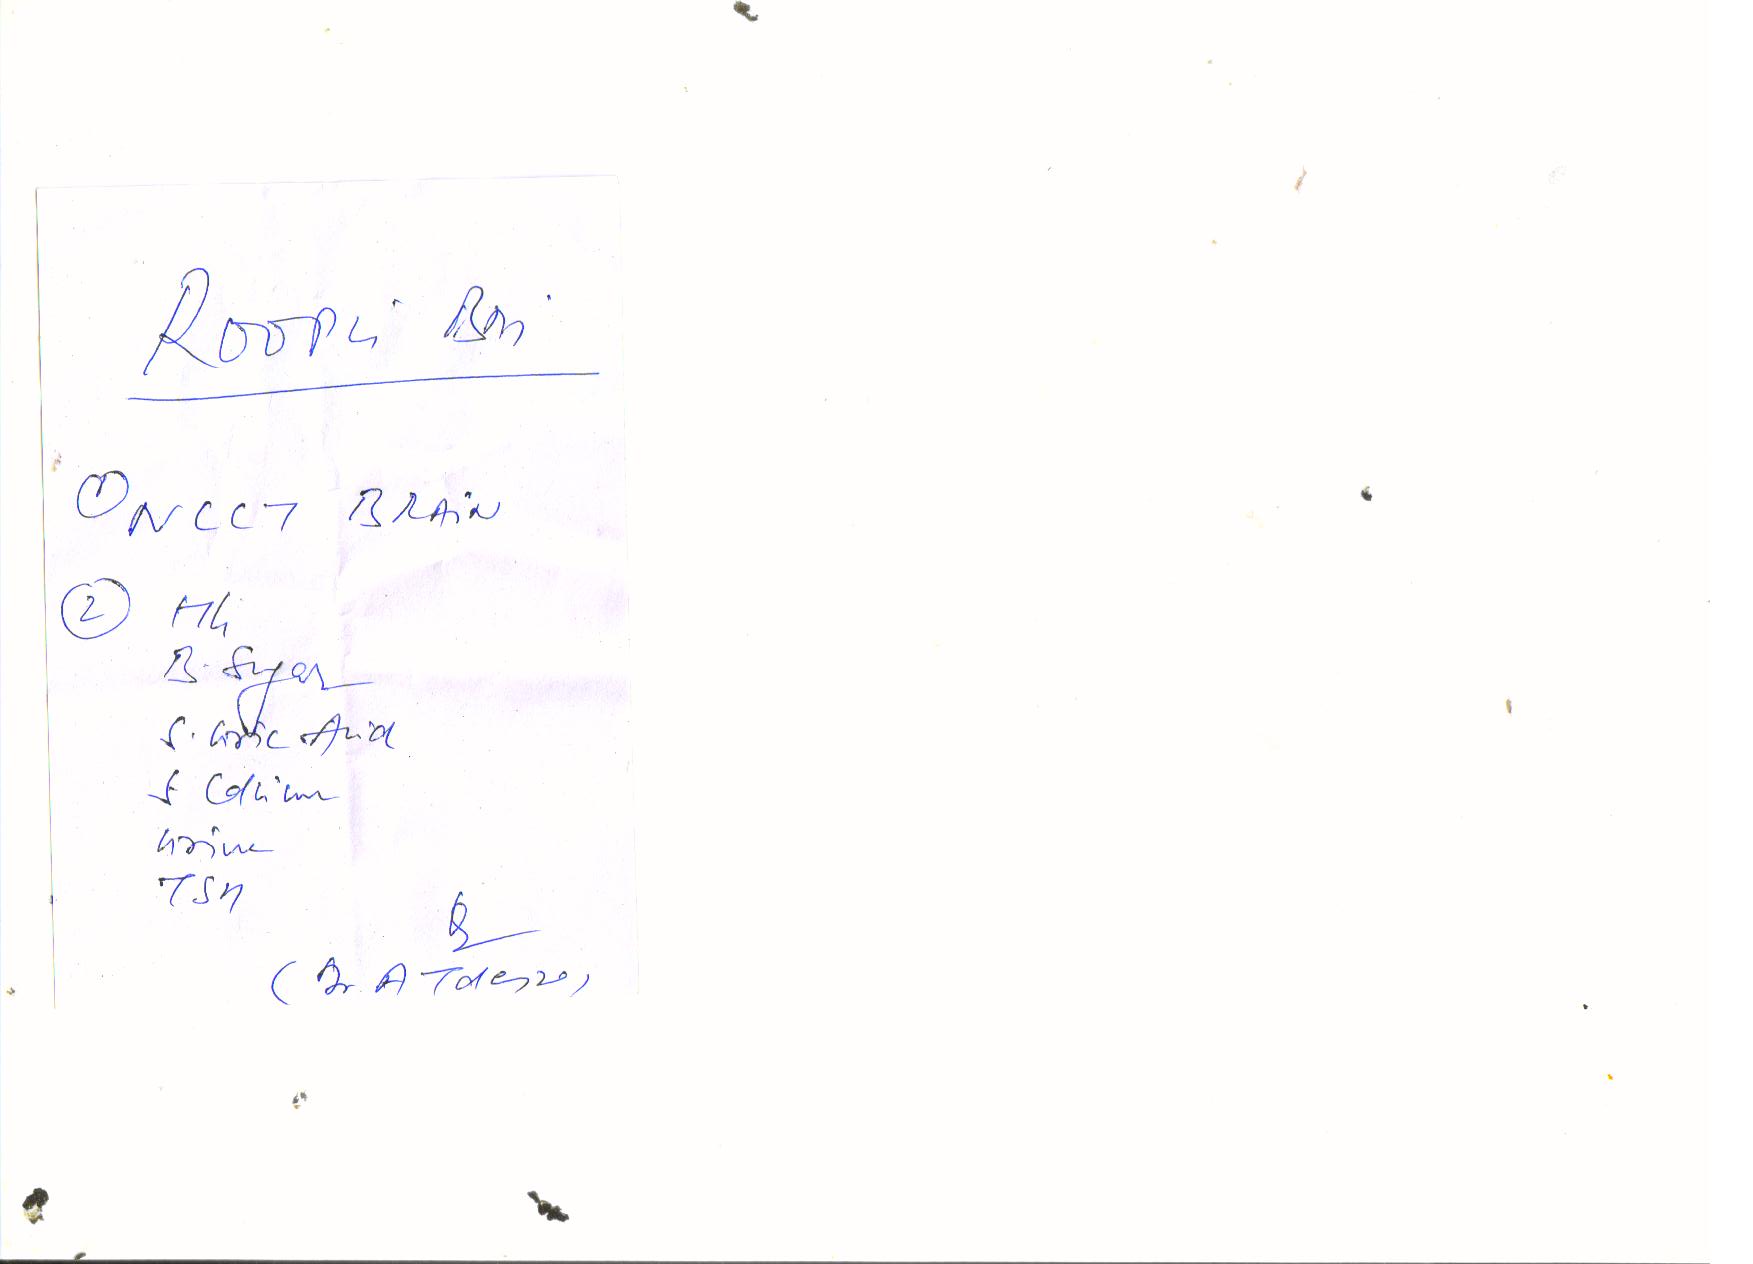 ROOPLi BAi
① NCCT BRAiN
② Hb
B. Sugar
S. Uric Acid
S Calcium
Urine
TSH
(Dr. A